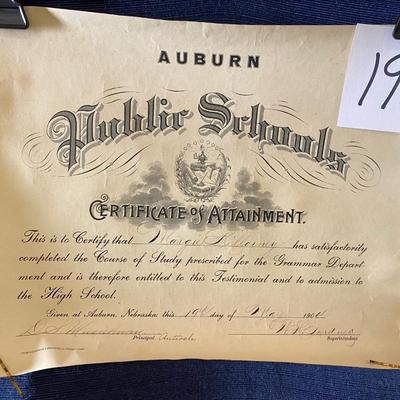 AUBURN
19
Public Schools
CERTIFICATE OF ATTAINMENT.
This is to Certify that has satisfactorily
completed the Course of Study prescribed for the Grammar Depart
ment and is therefore entitled to this Testimonial and to admission to
the High School.
Given at Auburn, Nebraska: this 19th day of May 1904
Principal Superintendent